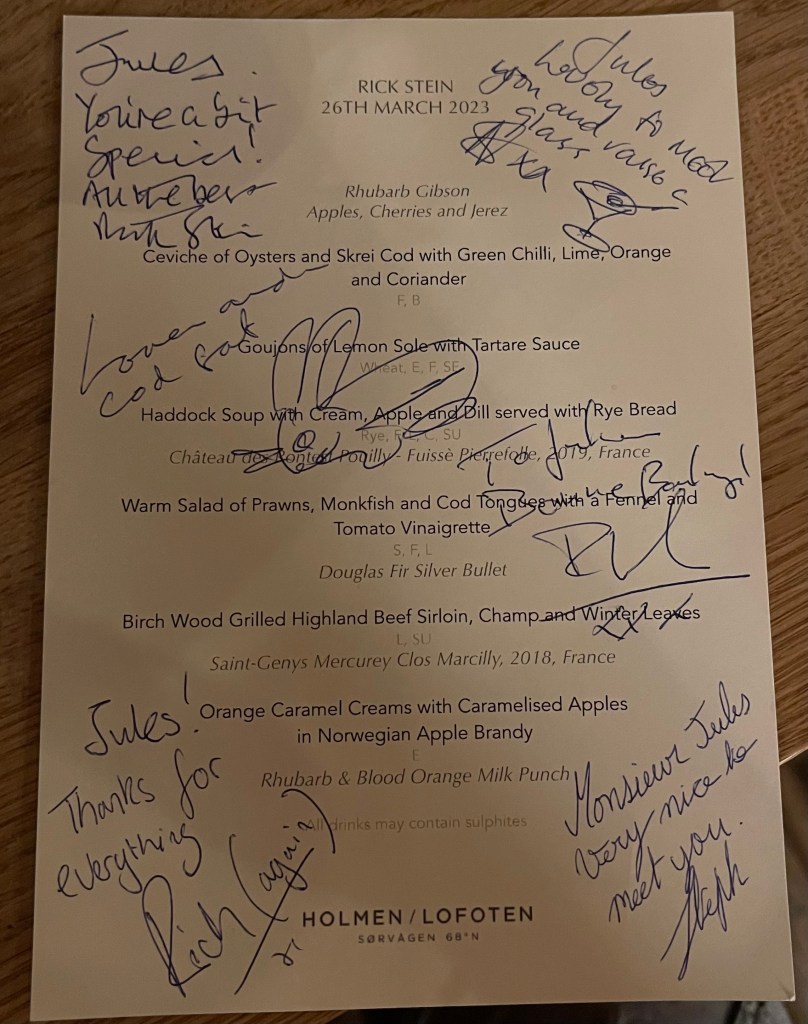 Jules.
You're a bit
Special!
All the best
Rick Stein
Jules
to meet
you and raise a
glass
RICK STEIN
26TH MARCH 2023
Rhubarb Gibson
Apples, Cherries and Jerez
Ceviche of Oysters and Skrei Cod with Green Chilli, Lime, Orange
and Coriander
F, B
Love and
cod
Goujons of Lemon Sole with Tartare Sauce
Wheat, E, F, SE
Haddock Soup with Cream, Apple and Dill served with Rye Bread
Rye, SU
Château des Pouilly - Fuissè Pierrefolle, 2019, France
To
Warm Salad of Prawns, Monkfish and Cod Tongues with a Fennel and
Tomato Vinaigrette
S, F, L
Douglas Fir Silver Bullet
Birch Wood Grilled Highland Beef Sirloin, Champ and Winter Leaves
L, SU
Saint-Genys Mercurey Clos Marcilly, 2018, France
Orange Caramel Creams with Caramelised Apples
in Norwegian Apple Brandy
E
Rhubarb & Blood Orange Milk Punch
All drinks may contain sulphites
Jules!
Thanks for
everything
Rich (again)
Monsieur Jules
Very nice to
meet you.
Steph
HOLMEN / LOFOTEN
SØRVÅGEN 68°N